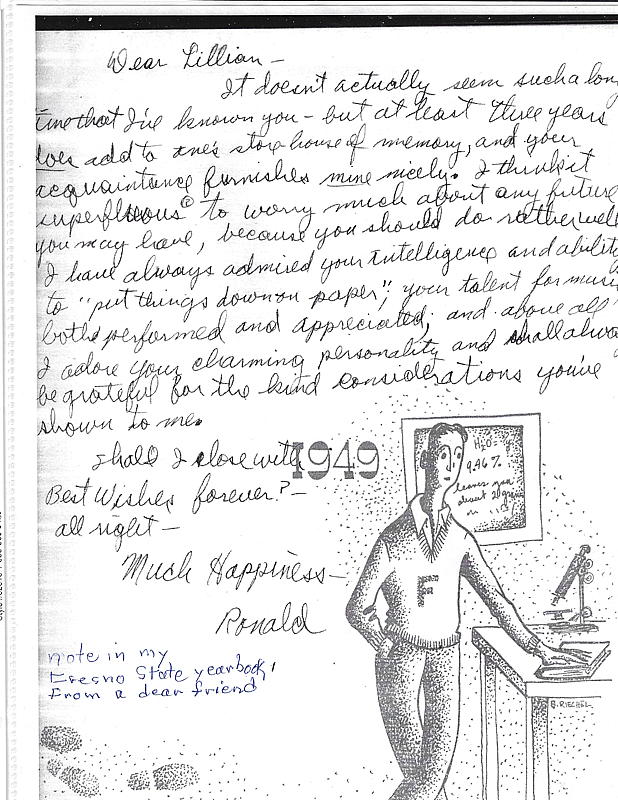 Dear Lillian –
It doesn't actually seem such a long
time that I've known you – but at least three years
does add to one's store house of memory, and your
acquaintance furnishes mine nicely. I think it
superfluous to worry much about any future
you may have, because you should do rather well
I have always admired your intelligence and ability
to "put things down on paper", your talent for music
both performed and appreciated; and above all
I adore your charming personality and shall alwa
be grateful for the kind considerations you've
shown to me.
Shall I close with
1949
Best Wishes forever? –
all right –
Much Happiness –
Ronald
H2O
9.46%
leaves you
about 20 gra
F
B. RIECHEL
note in my
Fresno State yearbook,
From a dear friend